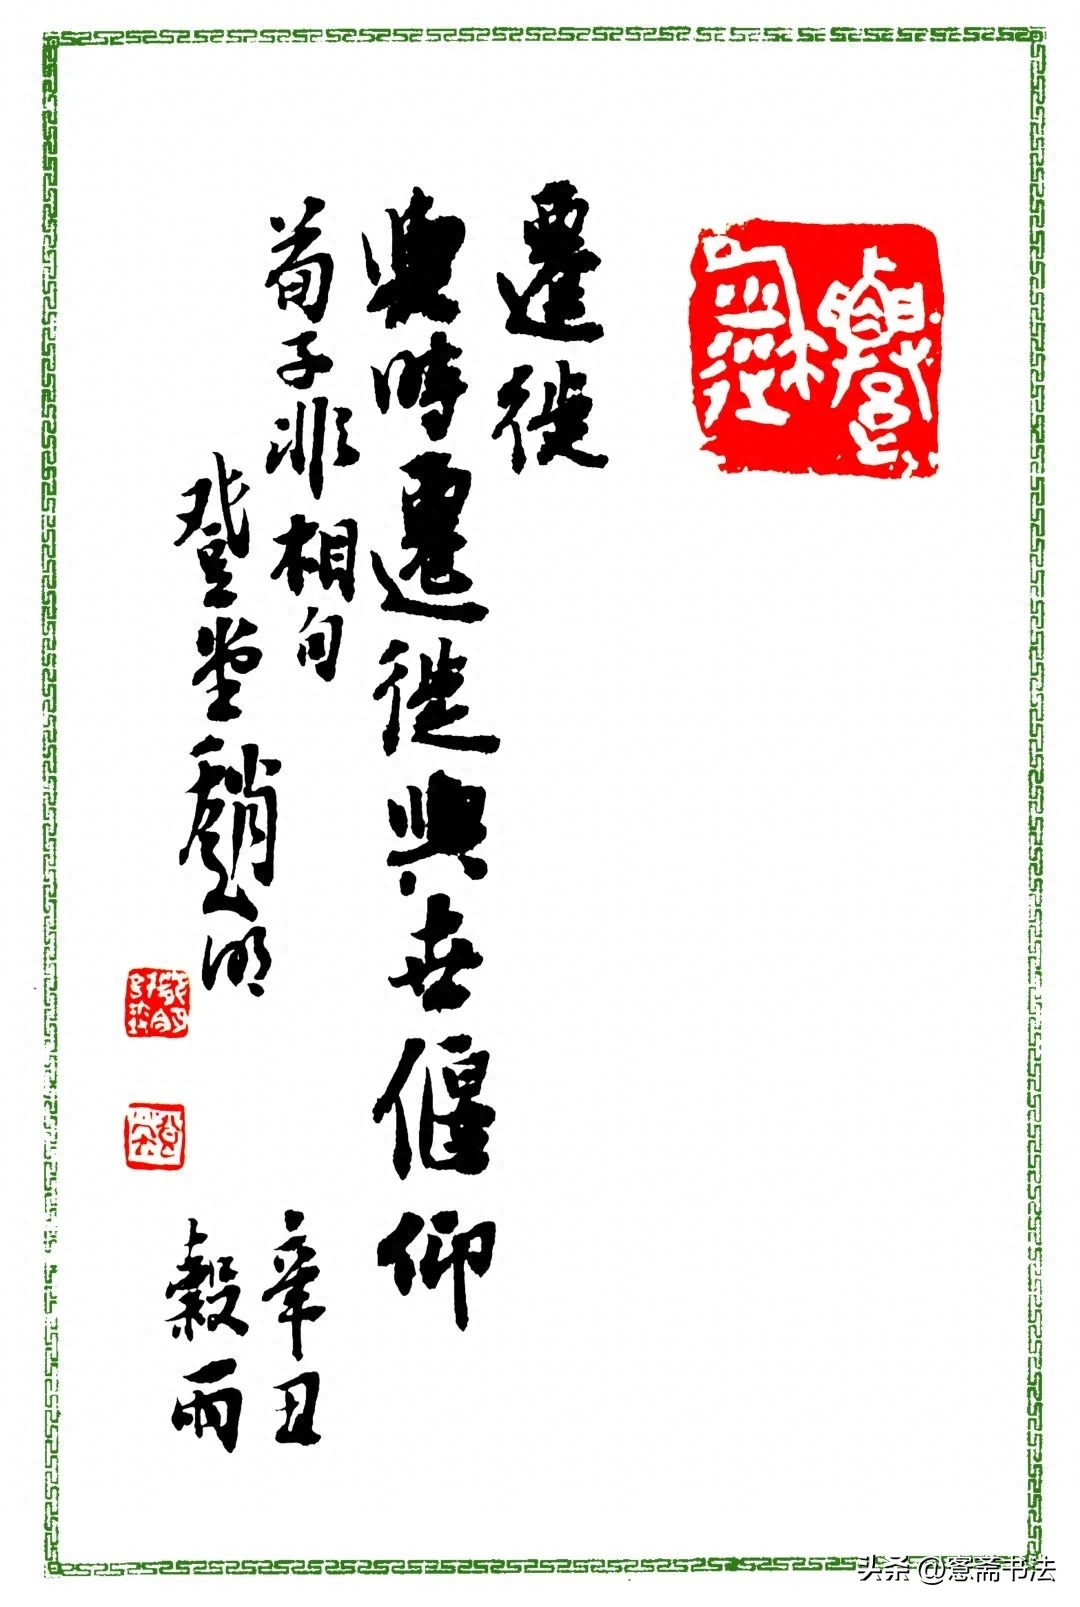 遷徙
與時遷徙與世偃仰
荀子非相句
辛丑
登堂
明
穀雨
头条 @窓斋书法